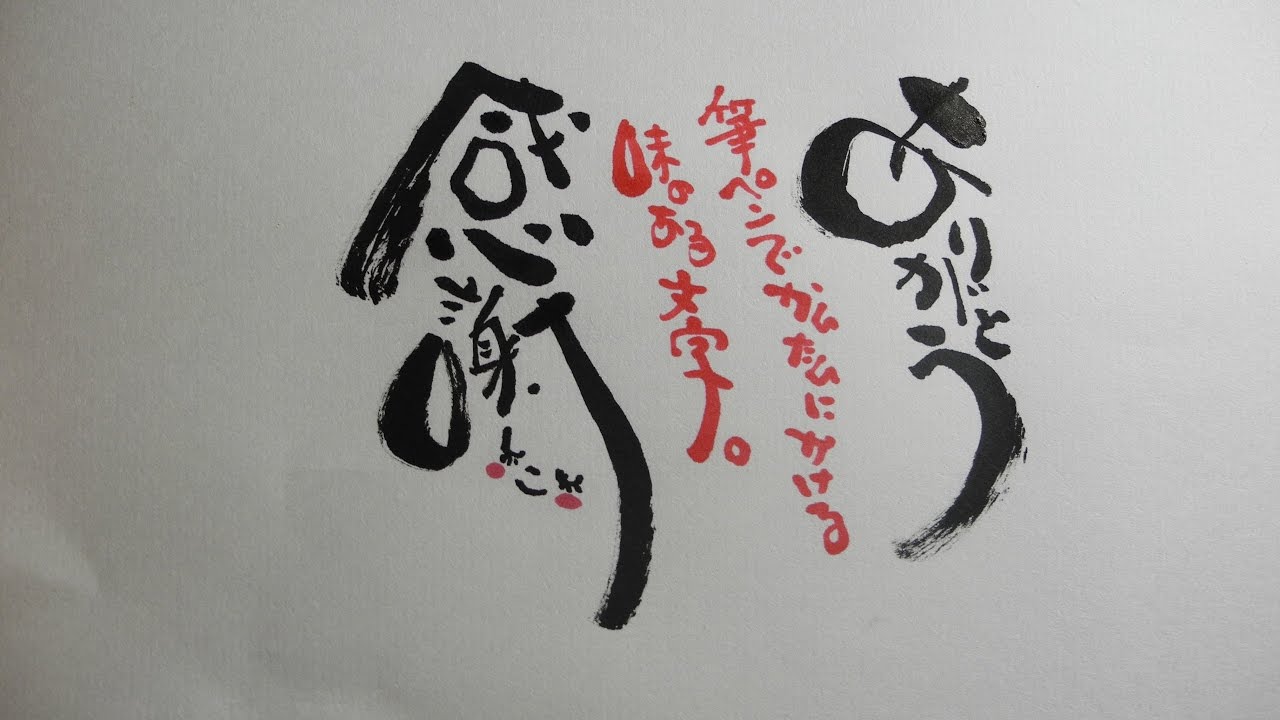 ありがとう
筆ペンでかんたんにかける
味のある文字。
感謝